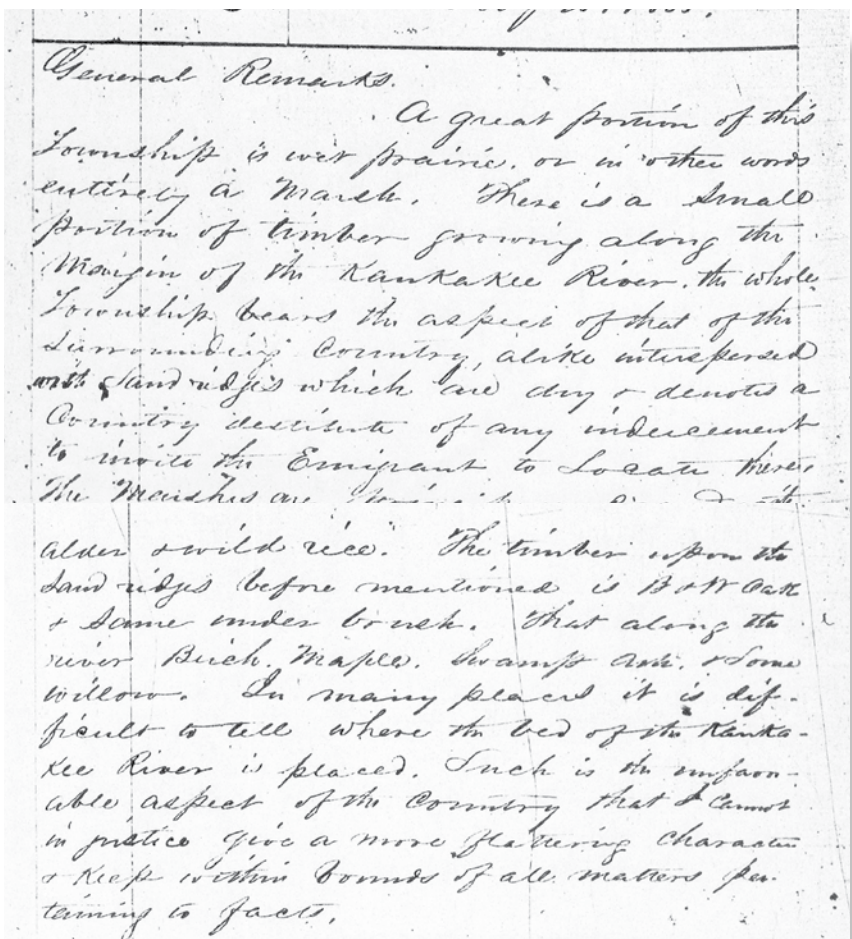 General Remarks.
A great portion of this
Township is wet prairie. or in other words
entirely a Marsh. There is a small
portion of timber growing along the
Margin of the Kankakee River. the whole
Township bears the aspect of that of the
surrounding Country, alike interspersed
with Sand ridges which are dry & denotes a
Country destitute of any inducement
to invite the Emigrant to Locate there.
The Marshes are
alder & wild rice. The timber upon the
Sand ridges before mentioned is B & W Oak
& Same under brush. That along the
river Birch. Maple. Swamp Ash. & Some
willow. In many places it is dif-
ficult to tell where the bed of the Kanka-
kee River is placed. Such is the unfavor-
able aspect of the Country that I Cannot
in justice give a more flattering character
& Keep within bounds of all matters per-
taining to facts.